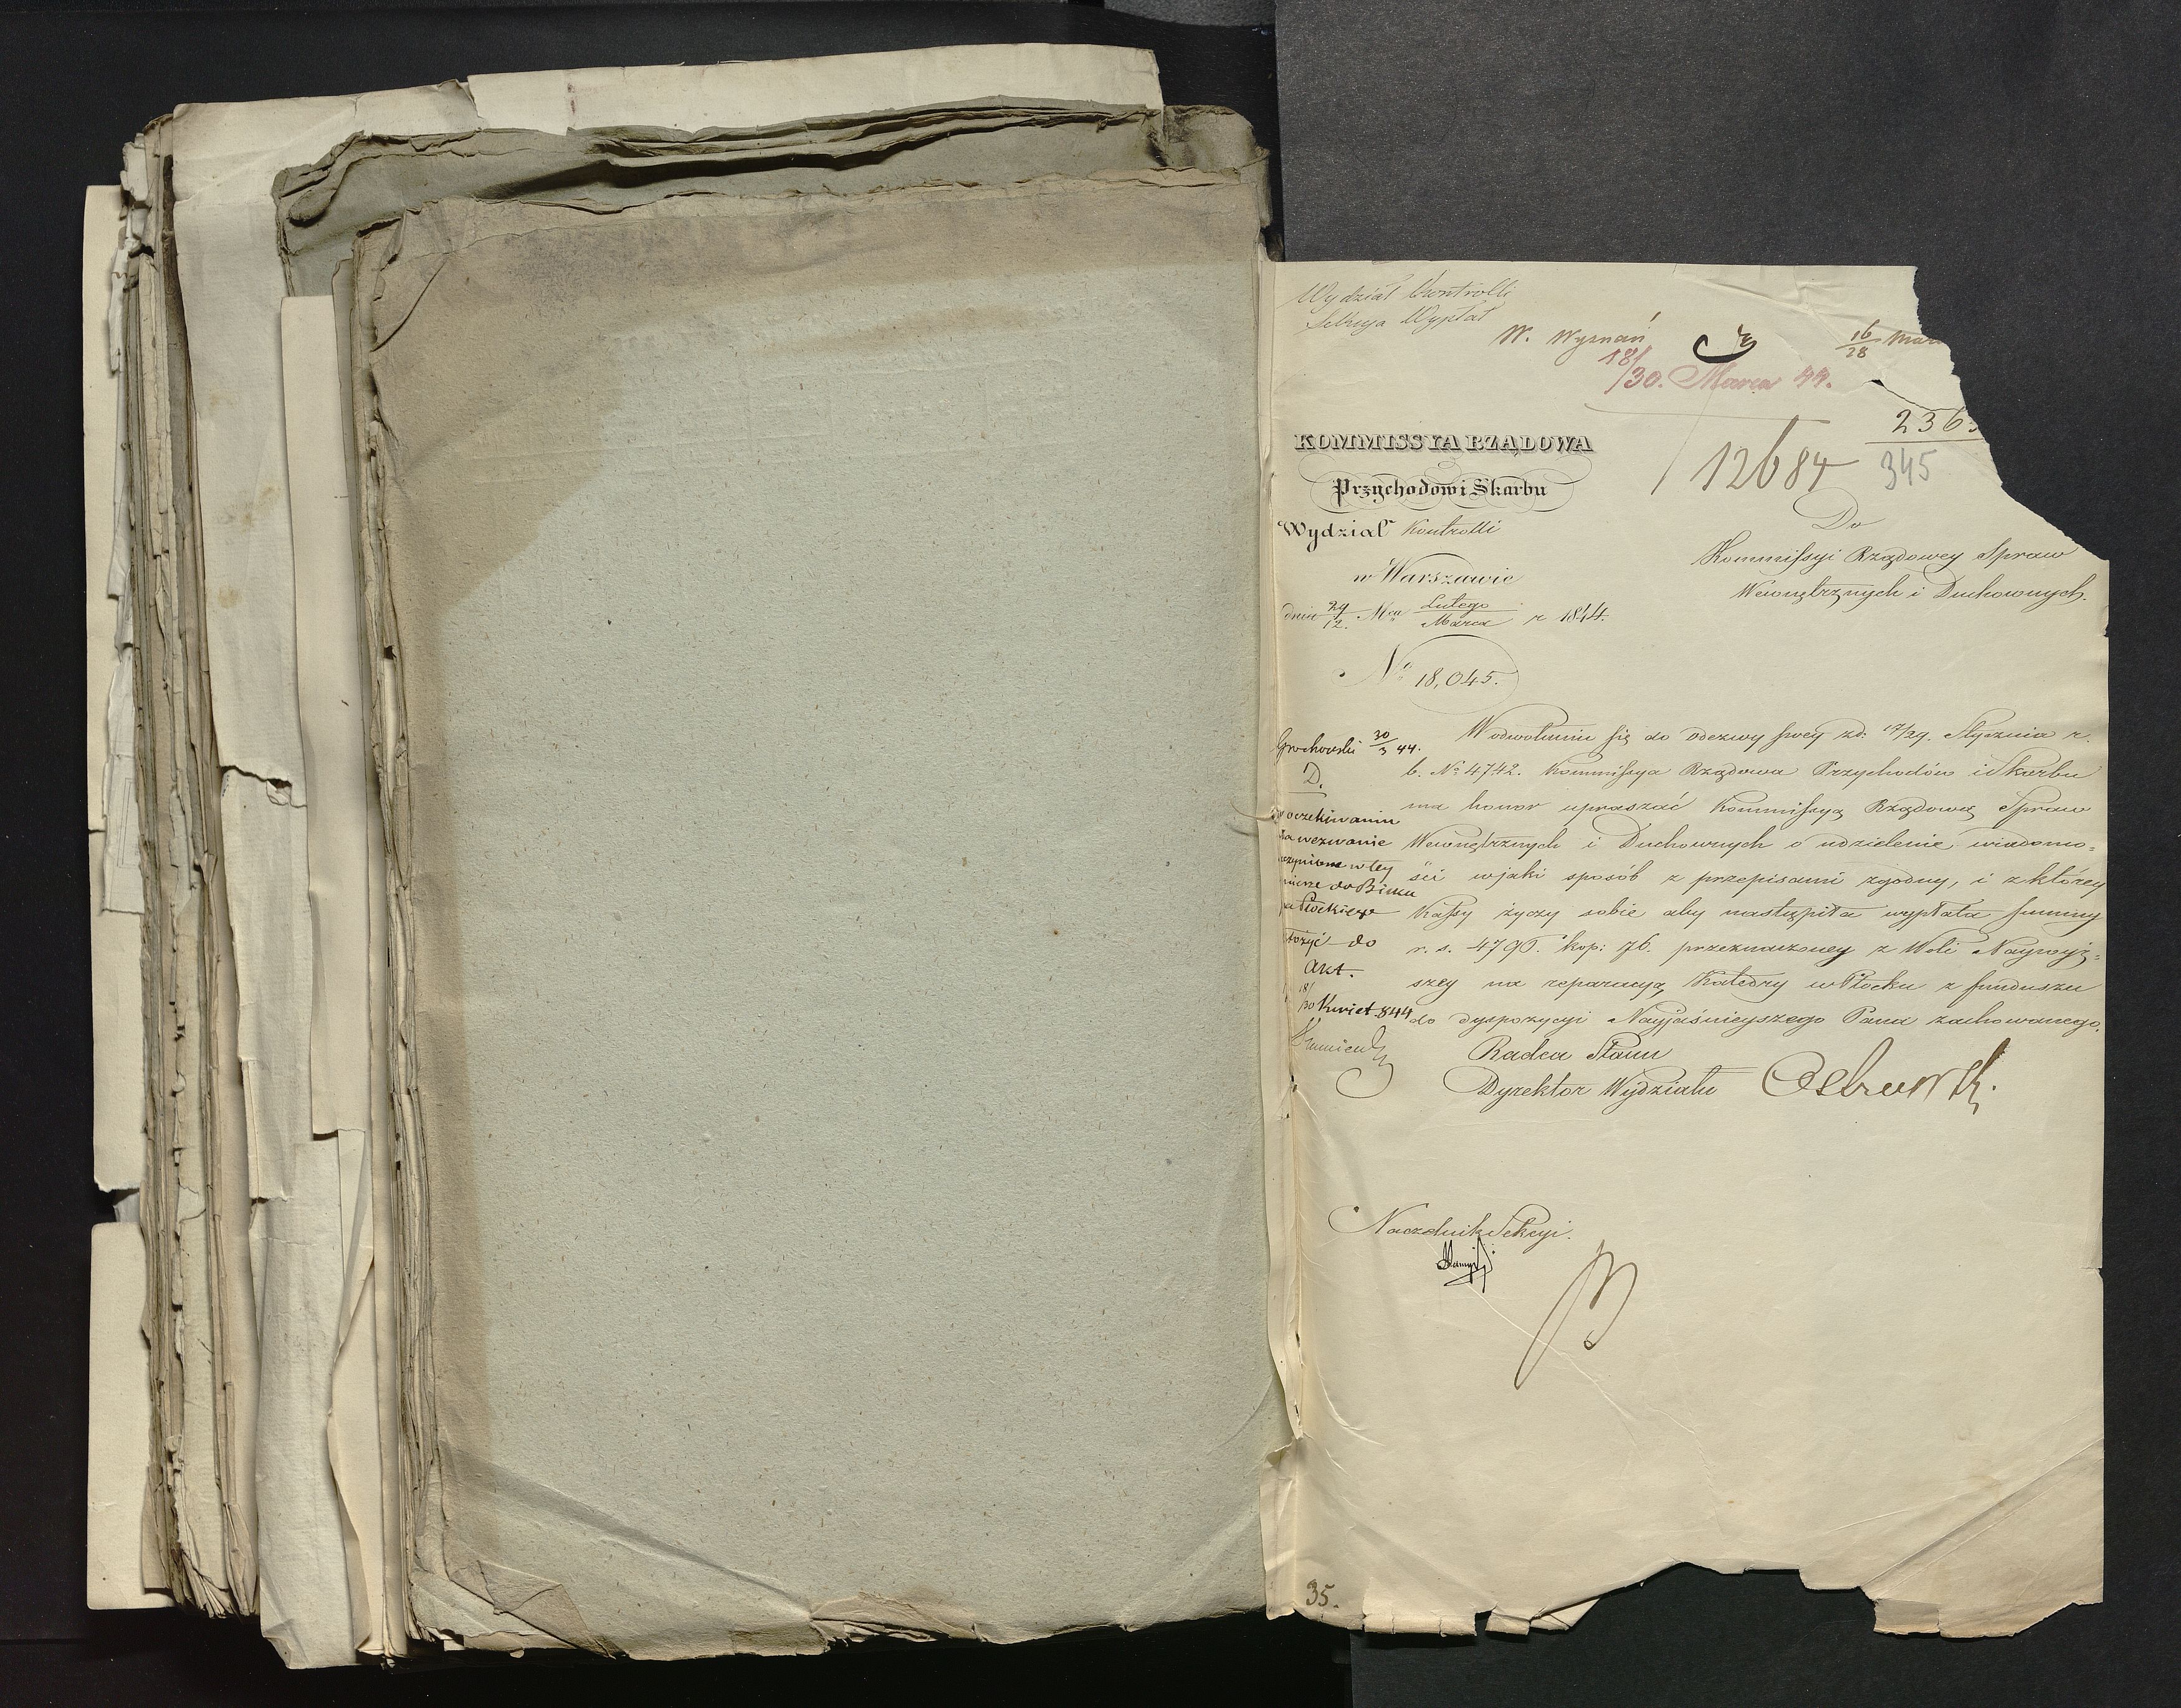 Wydział Kontrolli
Sekcya Wypłat
W. Wyznań
16/28 Mar
18/30. Marca 44.
236
12684
345
KOMMISSYA RZĄDOWA
Przychodów i Skarbu
Wydział Kontrolli
w Warszawie
dnia 29/12. Mca Lutego/Marca r 1844.
Nº 18,045.
Do
Kommissyi Rządowey Spraw
Wewnętrznych i Duchownych.
W odwołaniu się do odezwy swey zd: 17/29. Stycznia r.
b. Nº 4742. Kommissya Rządowa Przychodów i Skarbu
ma honor upraszać Kommissyą Rządową Spraw
Wewnętrznych i Duchownych o udzielenie wiadomo=
ści wjaki sposób z przepisami zgodny, i z którey
Kassy życzy sobie aby nastąpiła wypłata summy
r. s. 4795. kop: 76. przeznaczoney z Woli Naywyż=
szey na reparacyą Katedry w Płocku z funduszu
do dyspozycyi Nayjaśnieyszego Pana zachowanego.
Radca Stanu
Dyrektor Wydziału
Grochowski 30/3 44.
D.
w oczekiwaniu
na wezwanie
uczynione w tey
mierze do Bisku
pa Płockiego
złożyć do
Akt.
18/30 Kwiet. 844
Naczelnik Sekcyi.
35.